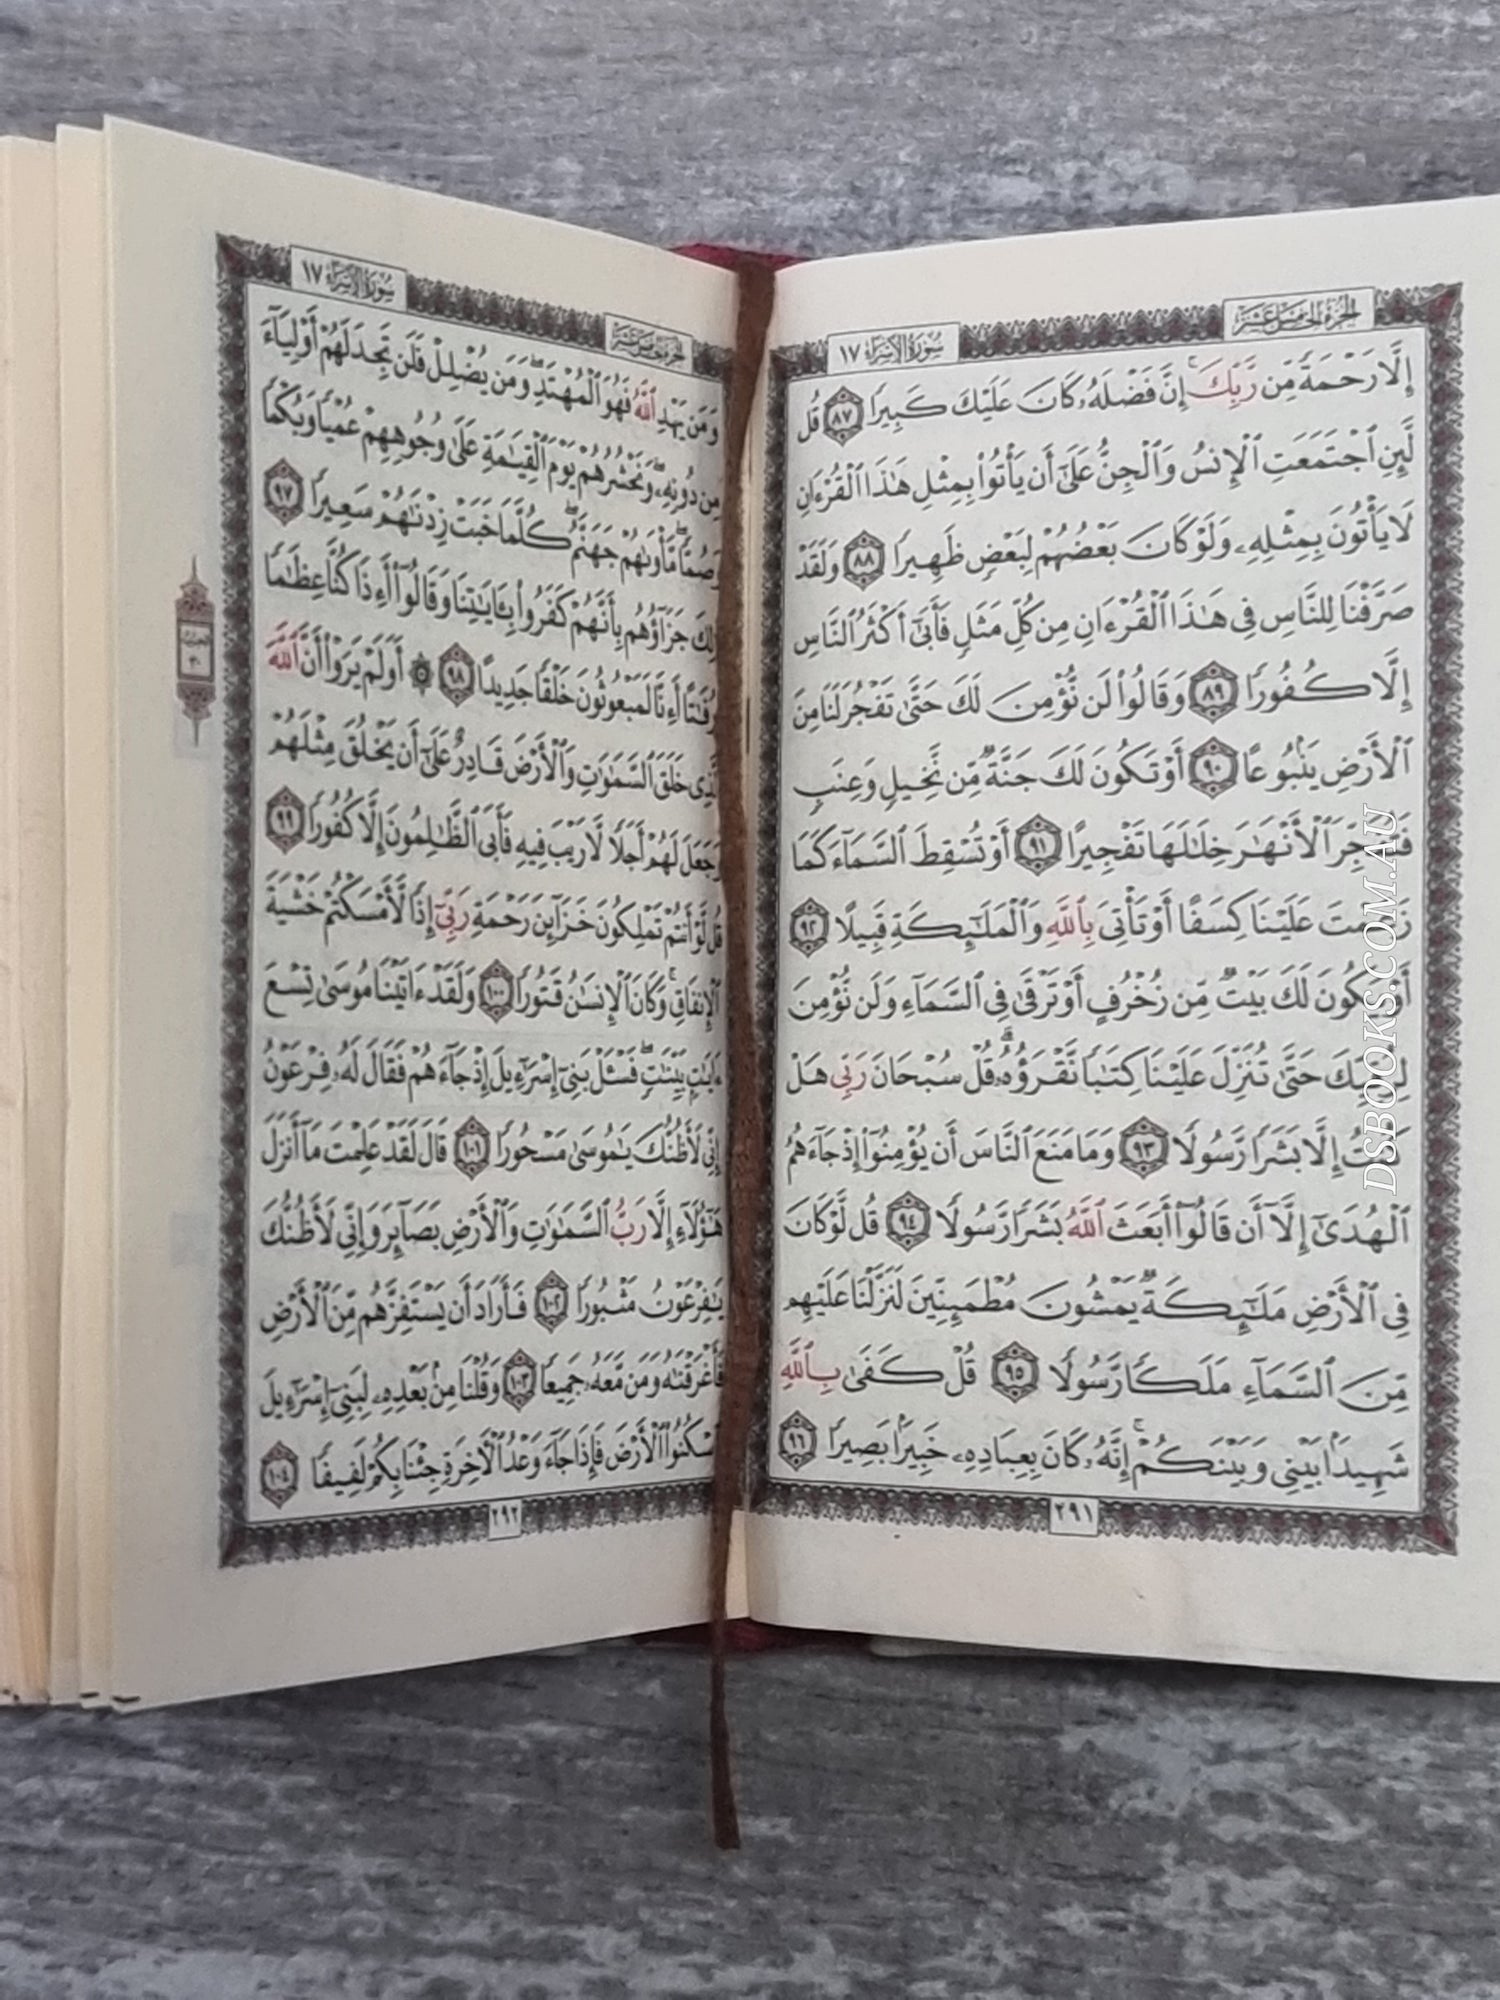 الجزء الخامس عشر
سورة الإسراء ١٧
إِلَّا رَحْمَةً مِّن رَّبِّكَ ۚ إِنَّ فَضْلَهُۥ كَانَ عَلَيْكَ كَبِيرًا ٨٧ قُل
لَّئِنِ ٱجْتَمَعَتِ ٱلْإِنسُ وَٱلْجِنُّ عَلَىٰٓ أَن يَأْتُوا۟ بِمِثْلِ هَٰذَا ٱلْقُرْءَانِ
لَا يَأْتُونَ بِمِثْلِهِۦ وَلَوْ كَانَ بَعْضُهُمْ لِبَعْضٍ ظَهِيرًا ٨٨ وَلَقَدْ
صَرَّفْنَا لِلنَّاسِ فِى هَٰذَا ٱلْقُرْءَانِ مِن كُلِّ مَثَلٍ فَأَبَىٰٓ أَكْثَرُ ٱلنَّاسِ
إِلَّا كُفُورًا ٨٩ وَقَالُوا۟ لَن نُّؤْمِنَ لَكَ حَتَّىٰ تَفْجُرَ لَنَا مِنَ
ٱلْأَرْضِ يَنۢبُوعًا ٩٠ أَوْ تَكُونَ لَكَ جَنَّةٌ مِّن نَّخِيلٍ وَعِنَبٍ
فَتُفَجِّرَ ٱلْأَنْهَٰرَ خِلَٰلَهَا تَفْجِيرًا ٩١ أَوْ تُسْقِطَ ٱلسَّمَآءَ كَمَا
زَعَمْتَ عَلَيْنَا كِسَفًا أَوْ تَأْتِىَ بِٱللَّهِ وَٱلْمَلَٰٓئِكَةِ قَبِيلًا ٩٢
أَوْ يَكُونَ لَكَ بَيْتٌ مِّن زُخْرُفٍ أَوْ تَرْقَىٰ فِى ٱلسَّمَآءِ وَلَن نُّؤْمِنَ
لِرُقِيِّكَ حَتَّىٰ تُنَزِّلَ عَلَيْنَا كِتَٰبًا نَّقْرَؤُهُۥ ۗ قُلْ سُبْحَانَ رَبِّى هَلْ
كُنتُ إِلَّا بَشَرًا رَّسُولًا ٩٣ وَمَا مَنَعَ ٱلنَّاسَ أَن يُؤْمِنُوٓا۟ إِذْ جَآءَهُمُ
ٱلْهُدَىٰٓ إِلَّآ أَن قَالُوٓا۟ أَبَعَثَ ٱللَّهُ بَشَرًا رَّسُولًا ٩٤ قُل لَّوْ كَانَ
فِى ٱلْأَرْضِ مَلَٰٓئِكَةٌ يَمْشُونَ مُطْمَئِنِّينَ لَنَزَّلْنَا عَلَيْهِم
مِّنَ ٱلسَّمَآءِ مَلَكًا رَّسُولًا ٩٥ قُلْ كَفَىٰ بِٱللَّهِ
شَهِيدًۢا بَيْنِى وَبَيْنَكُمْ ۚ إِنَّهُۥ كَانَ بِعِبَادِهِۦ خَبِيرًۢا بَصِيرًا ٩٦
٢٩١
الجزء الخامس عشر
سورة الإسراء ١٧
وَمَن يَهْدِ ٱللَّهُ فَهُوَ ٱلْمُهْتَدِ ۖ وَمَن يُضْلِلْ فَلَن تَجِدَ لَهُمْ أَوْلِيَآءَ
مِن دُونِهِۦ ۖ وَنَحْشُرُهُمْ يَوْمَ ٱلْقِيَٰمَةِ عَلَىٰ وُجُوهِهِمْ عُمْيًا وَبُكْمًا
وَصُمًّا ۖ مَّأْوَىٰهُمْ جَهَنَّمُ ۖ كُلَّمَا خَبَتْ زِدْنَٰهُمْ سَعِيرًا ٩٧
ذَٰلِكَ جَزَآؤُهُم بِأَنَّهُمْ كَفَرُوا۟ بِـَٔايَٰتِنَا وَقَالُوٓا۟ أَءِذَا كُنَّا عِظَٰمًا
وَرُفَٰتًا أَءِنَّا لَمَبْعُوثُونَ خَلْقًا جَدِيدًا ٩٨ ۞ أَوَلَمْ يَرَوْا۟ أَنَّ ٱللَّهَ
ٱلَّذِى خَلَقَ ٱلسَّمَٰوَٰتِ وَٱلْأَرْضَ قَادِرٌ عَلَىٰٓ أَن يَخْلُقَ مِثْلَهُمْ
وَجَعَلَ لَهُمْ أَجَلًا لَّا رَيْبَ فِيهِ فَأَبَى ٱلظَّٰلِمُونَ إِلَّا كُفُورًا ٩٩
قُل لَّوْ أَنتُمْ تَمْلِكُونَ خَزَآئِنَ رَحْمَةِ رَبِّىٓ إِذًا لَّأَمْسَكْتُمْ خَشْيَةَ
ٱلْإِنفَاقِ ۚ وَكَانَ ٱلْإِنسَٰنُ قَتُورًا ١٠٠ وَلَقَدْ ءَاتَيْنَا مُوسَىٰ تِسْعَ
ءَايَٰتٍۭ بَيِّنَٰتٍ ۖ فَسْـَٔلْ بَنِىٓ إِسْرَٰٓءِيلَ إِذْ جَآءَهُمْ فَقَالَ لَهُۥ فِرْعَوْنُ
إِنِّى لَأَظُنُّكَ يَٰمُوسَىٰ مَسْحُورًا ١٠١ قَالَ لَقَدْ عَلِمْتَ مَآ أَنزَلَ
هَٰٓؤُلَآءِ إِلَّا رَبُّ ٱلسَّمَٰوَٰتِ وَٱلْأَرْضِ بَصَآئِرَ وَإِنِّى لَأَظُنُّكَ
يَٰفِرْعَوْنُ مَثْبُورًا ١٠٢ فَأَرَادَ أَن يَسْتَفِزَّهُم مِّنَ ٱلْأَرْضِ
فَأَغْرَقْنَٰهُ وَمَن مَّعَهُۥ جَمِيعًا ١٠٣ وَقُلْنَا مِنۢ بَعْدِهِۦ لِبَنِىٓ إِسْرَٰٓءِيلَ
ٱسْكُنُوا۟ ٱلْأَرْضَ فَإِذَا جَآءَ وَعْدُ ٱلْءَاخِرَةِ جِئْنَا بِكُمْ لَفِيفًا ١٠٤
٢٩٢
DSBOOKS.COM.AU